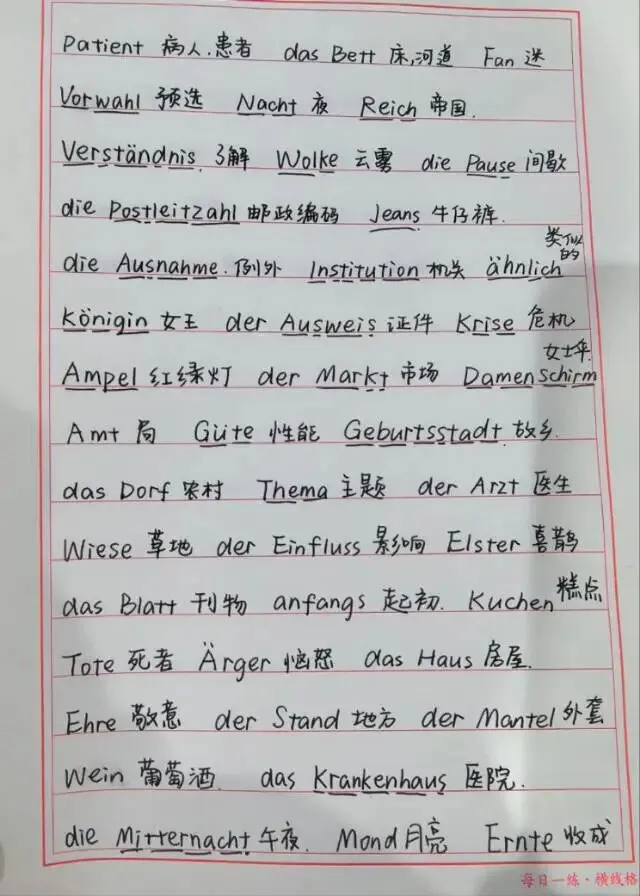 Patient 病人.患者 das Bett 床,河道 Fan 迷
Vorwahl 预选 Nacht 夜 Reich 帝国.
Verständnis 了解 Wolke 云雾 die Pause 间歇
die Postleitzahl 邮政编码 Jeans 牛仔裤.
die Ausnahme.例外 Institution 机关 ähnlich 类似的
Königin 女王 der Ausweis 证件 Krise 危机
Ampel 红绿灯 der Markt 市场 Damenschirm 女士伞.
Amt 局 Güte 性能 Geburtsstadt 故乡.
das Dorf 农村 Thema 主题 der Arzt 医生
Wiese 草地 der Einfluss 影响 Elster 喜鹊
das Blatt 刊物 anfangs 起初. Kuchen 糕点
Tote 死者 Ärger 恼怒 das Haus 房屋.
Ehre 敬意 der Stand 地方 der Mantel 外套
Wein 葡萄酒. das Krankenhaus 医院.
die Mitternacht 午夜. Mond 月亮 Ernte 收成
每日一练·横线格